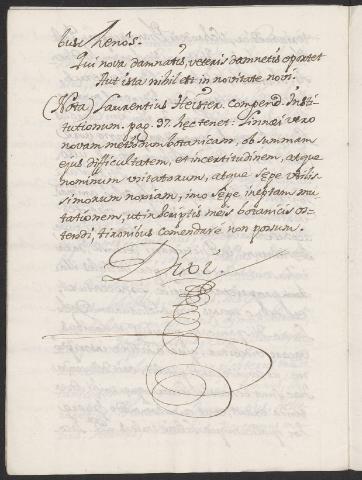 bus Zenôs.
Qui nova damnatis, veteris damnetis oportet
Aut ista nihil est in novitate novi.
(Nota) Laurentius Heister. compend. Insti-
tutionum. pag. 37. hec tenet: Linnei vero
novam methodum botanicam, ob summam
ejus difficultatem, et incertitudinem, atque
nominum usitatorum, atque sepe utilis-
simorum copiam, imo sepe ineptam mu-
tationem, ut in scriptis meis botanicis os-
tendi, tironibus comendare non possum.
Dixi.